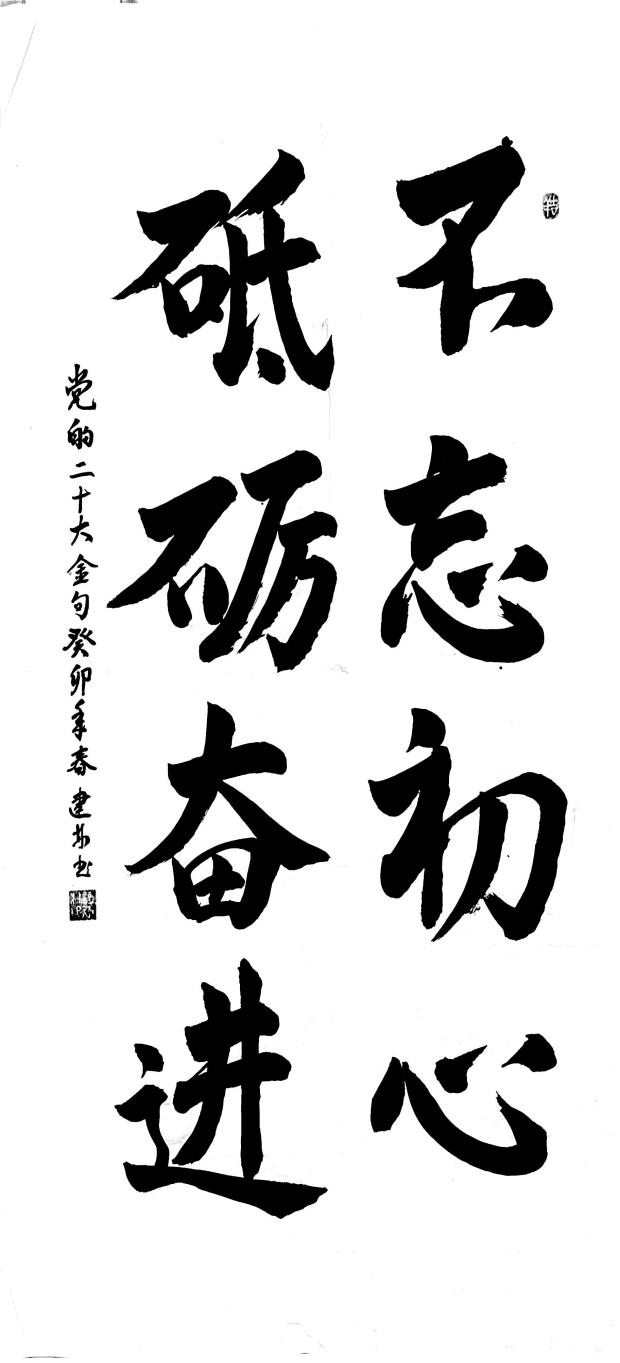 不忘初心
砥砺奋进
党的二十大金句癸卯年春建林书